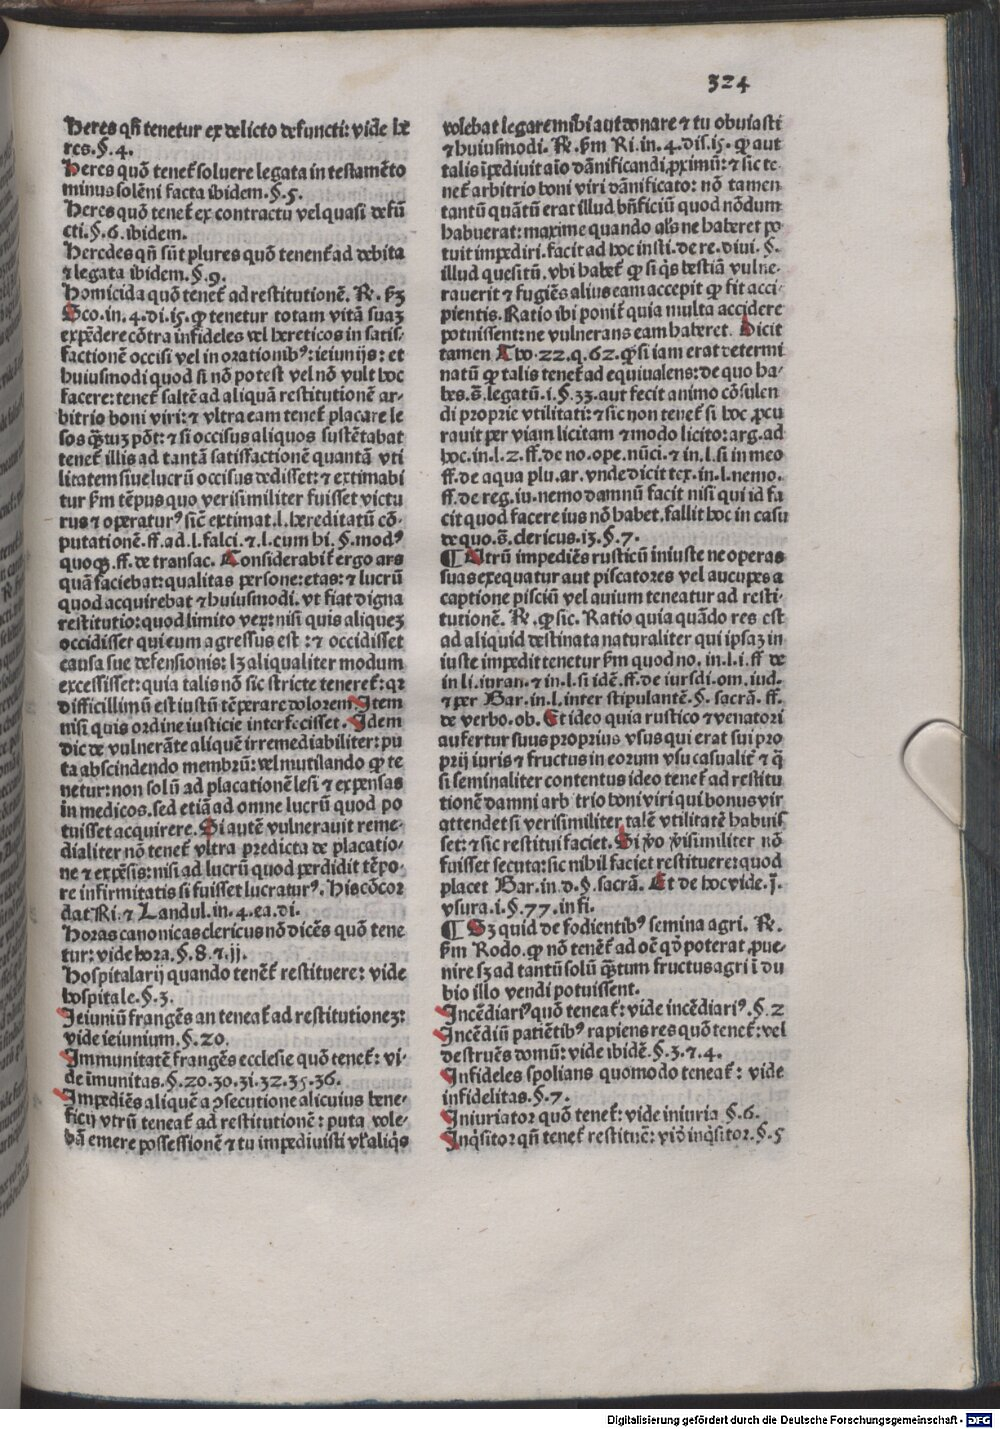 324
Heres qñ tenetur ex delicto defuncti: vide he
res.§.4.
Heres quõ tenet̃ soluere legata in testamẽto
minus solẽni facta ibidem.§.5.
Heres quõ tenet̃ ex contractu vel quasi defũ
cti.§.6.ibidem.
Heredes qñ sũt plures quõ tenent̃ ad debita
⁊ legata ibidem.§.9.
Homicida quõ tenet̃ ad restitutionẽ. ℟. ẜm
Sco.in.4.di.15.ꝙ tenetur totam vitã suaꝫ
expẽdere cõtra infideles vel hereticos in satis⸗
factionẽ occisi vel in orationibꝰ: ieiunijs: et
huiusmodi quod si nõ potest vel nõ vult hoc
facere: tenet̃ saltẽ ad aliquã restitutionẽ ar⸗
bitrio boni viri: ⁊ vltra eam tenet̃ placare le
sos q̃ꝫtuꝫ põt: ⁊ si occisus aliquos sustẽtabat
tenet̃ illis ad tantã satisfactionẽ quantã vti
litatem siue lucrũ occisus dedisset: ⁊ extimabi
tur ẜm tẽpus quo verisimiliter fuisset victu
rus ⁊ operaturꝰ sic̃ extimat.l.hereditatũ cõ⸗
putationẽ.ff.ad.l.falci.⁊.l.cum hi.§.modꝰ
quoqꝫ.ff.de transac. Considerabit̃ ergo ars
quã faciebat: qualitas persone: etas: ⁊ lucrũ
quod acquirebat ⁊ huiusmodi.vt fiat digna
restitutio: quod limito veꝝ: nisi quis aliqueꝫ
occidisset qui eum agressus est : ⁊ occidisset
causa sue defensionis: lꝫ aliqualiter modum
excessisset: quia talis nõ sic stricte teneret̃: qꝛ
difficillimũ est iustũ tẽperare dolorem Item
nisi quis ordine iusticie interfecisset. Idem
dic de vulnerãte aliquẽ irremediabiliter: pu
ta abscindendo membrũ: vel mutilando ꝙ te
netur: non solũ ad placationẽ lesi ⁊ expensas
in medicos.sed etiã ad omne lucrũ quod po
tuisset acquirere. Si autẽ vulnerauit reme⸗
dialiter nõ tenet̃ vltra predicta de placatio⸗
ne ⁊ expẽsis: nisi ad lucrũ quod perdidit tẽpo⸗
re infirmitatis si fuisset lucraturꝰ. His cõcor
dat Ri.⁊ Landul.in.4.ea.di.
Horas canonicas clericus nõ dicẽs quõ tene
tur: vide hora.§.8.⁊.ij.
Hospitalarij quando tenẽt̃ restituere: vide
hospitale.§.3.
Ieiuniũ frangẽs an teneat̃ ad restitutioneꝫ:
vide ieiunium.§.20.
Immunitatẽ frangẽs ecclesie quõ tenet̃: vi⸗
de ĩmunitas.§.20.30.31.32.35.36.
Impediẽs aliquẽ a ꝯsecutione alicuius bene⸗
ficij vtrũ teneat̃ ad restitutionẽ: puta vole⸗
bã emere possessionẽ ⁊ tu impediuisti vl̓ aliq̃s
volebat legare mihi aut donare ⁊ tu obuiasti
⁊ huiusmodi. ℟. ẜm Ri.in.4.dis.15. ꝙ aut
talis ĩpediuit aĩo dãnificandi ꝓximũ: ⁊ sic te⸗
net̃ arbitrio boni viri dãnificato: nõ tamen
tantũ quãtũ erat illud bñficiũ quod nõdum
habuerat: maxime quando al̓s ne haberet po
tuit impediri.facit ad hoc insti.de re.diui.§.
illud quesitũ.vbi habet̃ ꝙ si q̃s bestiã vulne⸗
rauerit ⁊ fugiẽs alius eam accepit ꝙ fit acci⸗
pientis. Ratio ibi ponit̃ quia multa accidere
potuissent: ne vulnerans eam haberet. Dicit
tamen Tho.22.q.62.ꝙ si iam erat determi
natũ ꝙ talis tenet̃ ad equiualens: de quo ha⸗
bes.s̃.legatũ.i.§.33.aut fecit animo cõsulen
di proprie vtilitati: ⁊ sic non tenet̃ si hoc ꝓcu
rauit per viam licitam ⁊ modo licito: arg.ad
hoc.in.l.2.ff.de no.ope.nũci.⁊ in.l.si in meo
ff.de aqua plu.ar.vnde dicit tex.in.l.nemo.
ff.de reg.iu.nemo damnũ facit nisi qui id fa
cit quod facere ius nõ habet.fallit hoc in casu
de quo.s̃.clericus.13.§.7.
¶ Utrũ impediẽs rusticũ iniuste ne operas
suas exequatur aut piscatores vel aucupes a
captione pisciũ vel auium teneatur ad resti⸗
tutionẽ. ℟. ꝙ sic. Ratio quia quãdo res est
ad aliquid destinata naturaliter qui ipsaꝫ in
iuste impedit tenetur ẜm quod no.in.l.i.ff de
in li.iuran.⁊ in.l.si idẽ.ff.de iursdi.om.iud.
⁊ per Bar.in.l.inter stipulantẽ.§.sacrã.ff.
de verbo.ob. Et ideo quia rustico ⁊ venatori
aufertur suus proprius vsus qui erat sui pro
prij iuris ⁊ fructus in eorum vsu casualit̃ ⁊ q̃
si seminaliter contentus ideo tenet̃ ad restitu
tionẽ damni arb trio boni viri qui bonus vir
attendet si verisimiliter talẽ vtilitatẽ habuis
set: ⁊ sic restitui faciet. Si ꝟo ꝟisimiliter nõ
fuisset secuta: sic nihil faciet restituere: quod
placet Bar.in.d.§.sacrã. Et de hoc vide.j̃.
vsura.i.§.77.in fi.
¶ Sꝫ quid de fodientibꝰ semina agri. ℟.
ẜm Rodo.ꝙ nõ tenẽt̃ ad oẽ qď poterat ꝓue⸗
nire sꝫ ad tantũ solũ q̃ꝫtum fructus agri ĩ du
bio illo vendi potuissent.
Incẽdiariꝰ quõ teneat̃: vide incẽdiariꝰ.§.2
Incẽdiũ patiẽtibꝰ rapiens res quõ tenet̃: vel
destruẽs domũ: vide ibidẽ.§.3.⁊.4.
Infideles spolians quomodo teneat̃: vide
infidelitas.§.7.
Iniuriator quõ tenet̃: vide iniuria §.6.
Inq̃sitor qñ tenet̃ restituẽ: viď inq̃sitor.§.5
Digitalisierung gefördert durch die Deutsche Forschungsgemeinschaft - DFG